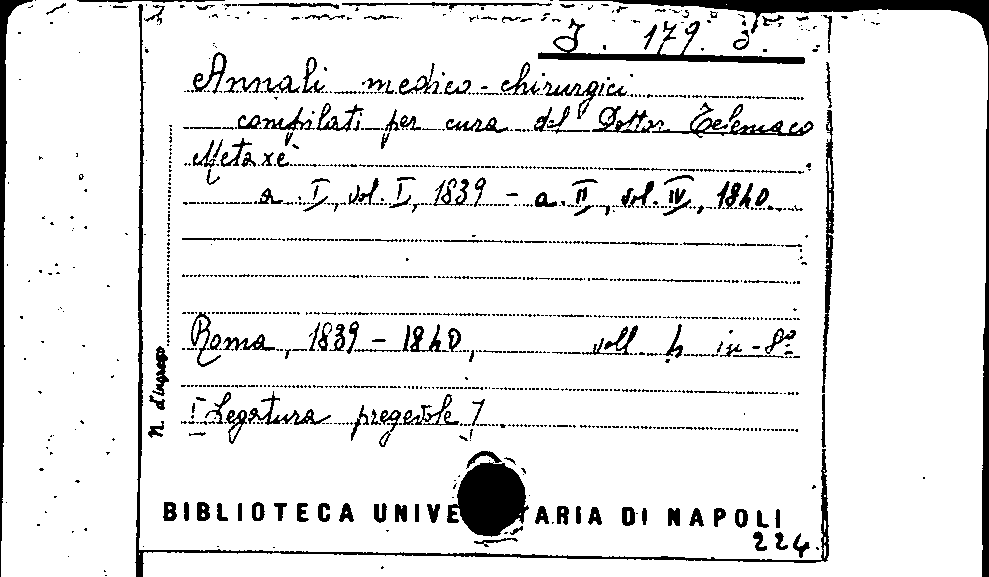 J. 179. 3.
Annali medico-chirurgici
compilati per cura del Dottor Telemaco
Metaxè
a. I, vol. I, 1839 - a. II, vol. IV, 1840.
Roma, 1839 - 1840, voll. 4 in-8º
N. d'ingresso
[Legatura pregevole]
BIBLIOTECA UNIVE TARIA DI NAPOLI
224